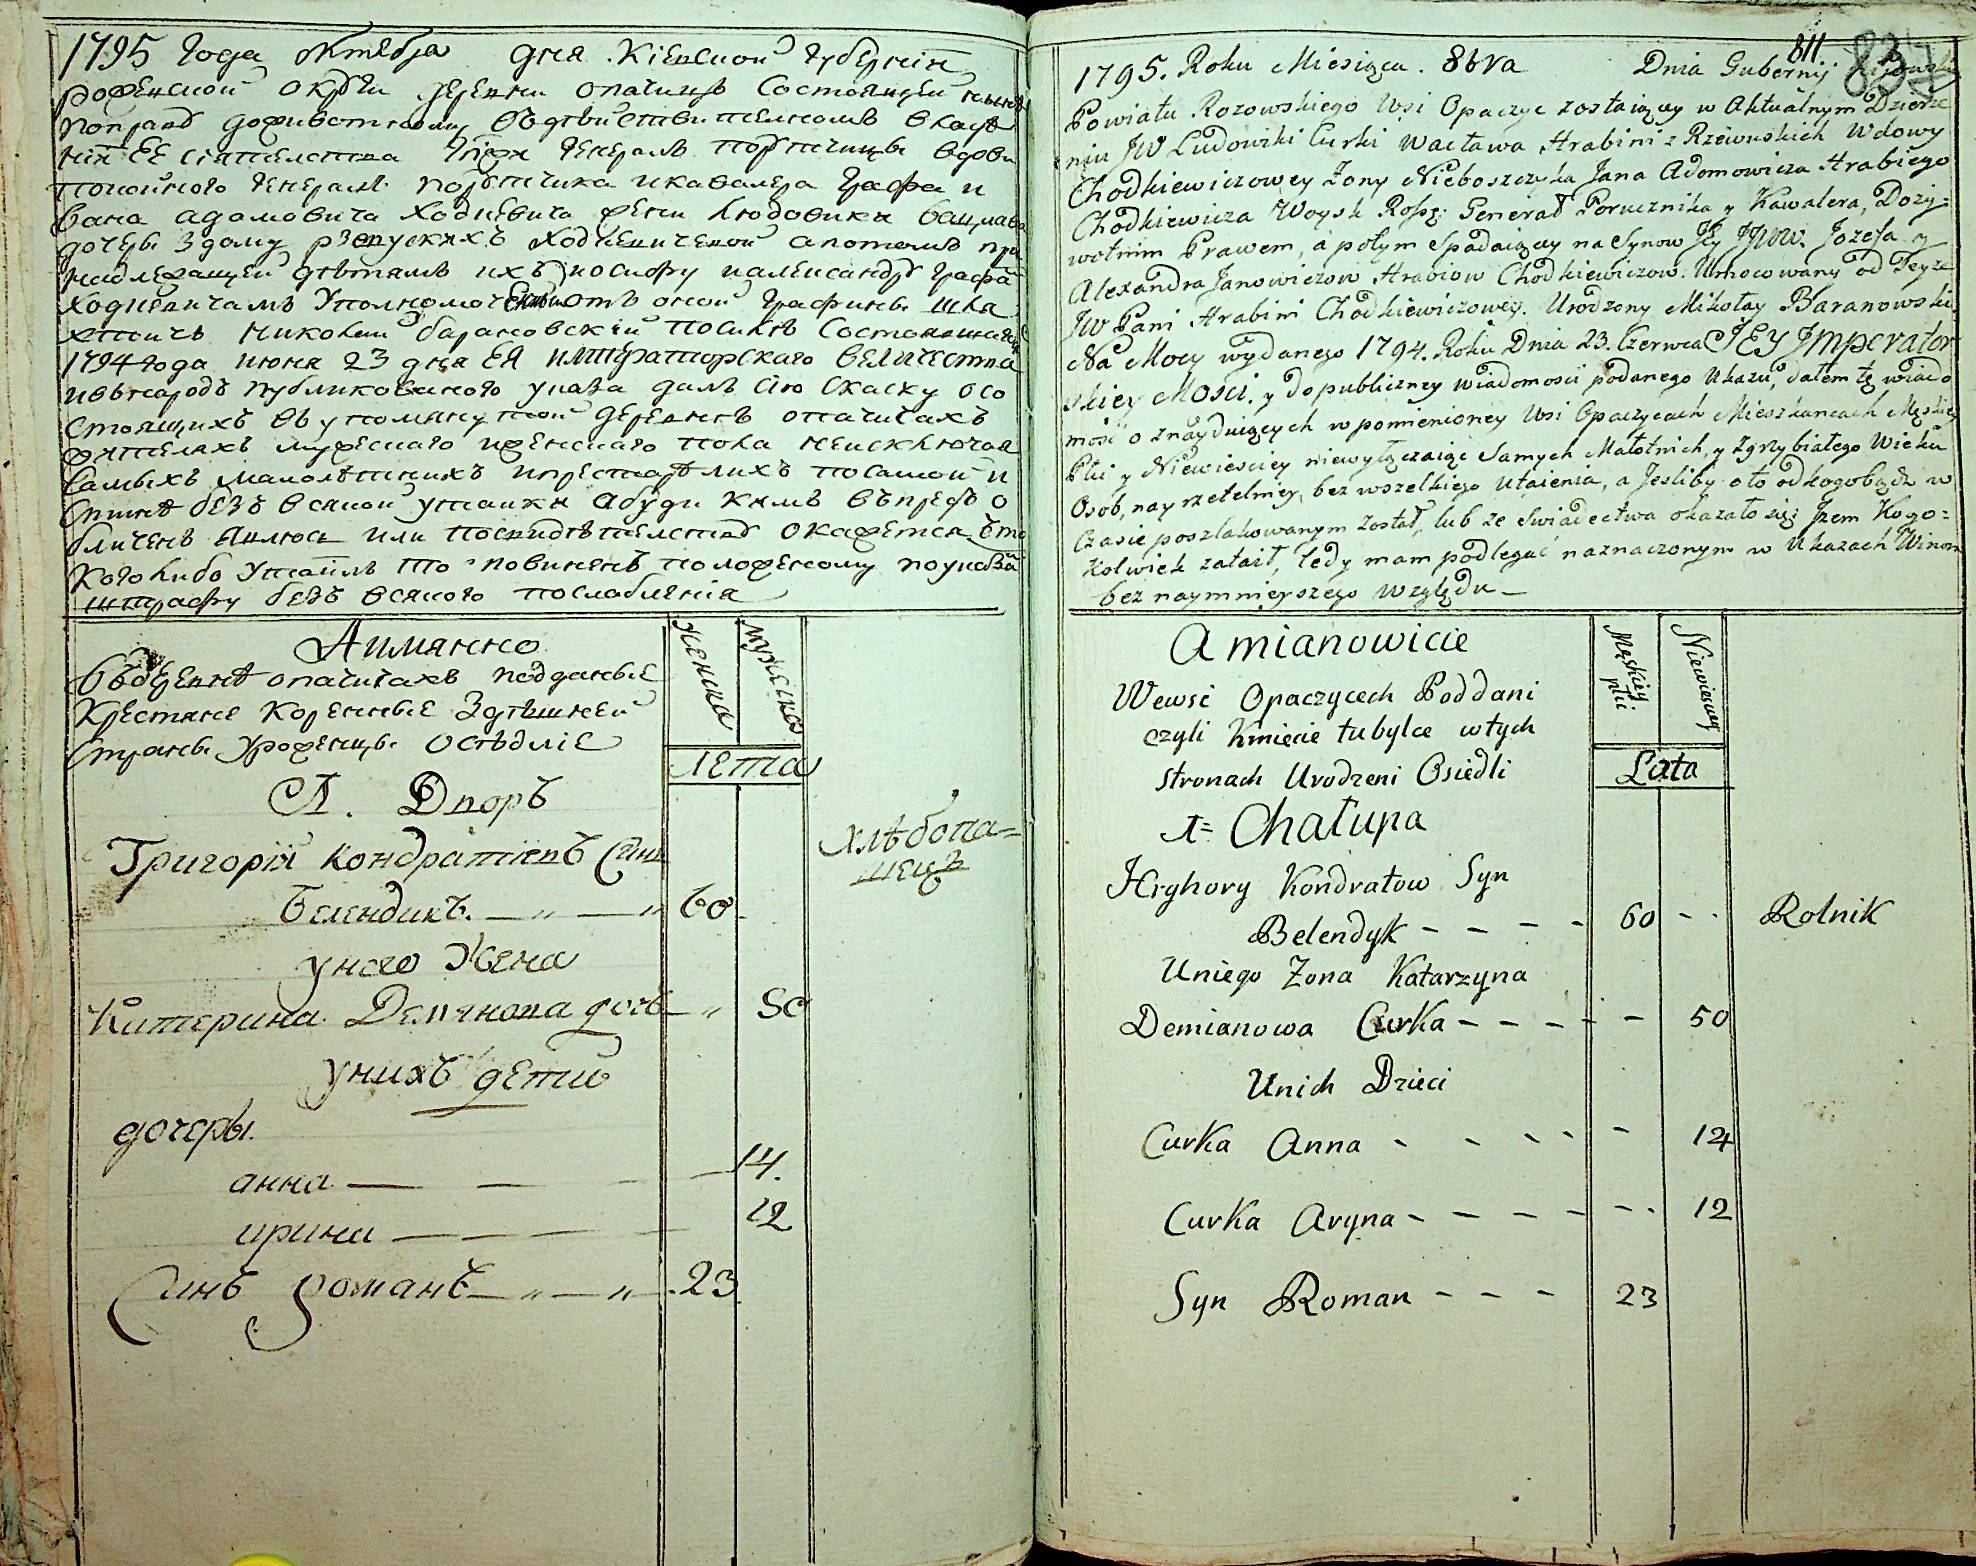 1795 года октебра дня Кіевской губерніи
роженской округи деревни опачичь состоящей нынѣ
поправѣ доживотному въдѣйствительномъ владѣ
ніи ЕЕ сіятельства графини Генералъ порутчицы вдовы
покойного Генералъ порутчика икавалера Графа и
вана адамовича Ходкевича жени людовики вацлава
дочеры здому рзевускихъ Ходкевичевой апотомъ при
надлежащей дѣтямъ ихъ иосифу иалександру Графа
Ходкевичамъ Уполномоченный отъ оной Графины шля
хтичъ николай барановскій посилѣ Состоявшагося
1794 года июня 23 дня ЕЯ императорскаго величества
ивънародъ публикованого указа далъ сію скаску осо
стоящихъ въупомянутой деревнѣ опачичахъ
жителяхъ мужескаго иженскаго пола неисключая
самыхъ малолѣтнихъ ипрестарѣлихъ посамой и
стинѣ безъ всякой утайки абуди кимъ въпредь о
бличенъ явлюсь или посвидѣтелству окажется что
кого либо утаилъ то повиненъ положеному поуказа
штрафу безъ всякого послабленія
Аимянно
Въдеревнѣ опачичахъ подданые
Крестяне коренные Здѣшней
страны Уроженцы осѣдліе
женска
мужеска
лета
А. Дворъ
Григорій кондратіевъ синъ
Белендикъ — „ — „ 60
хлѣбопа=
шецъ
унего Жена
Катерина Демянова дочь — „ 50
унихъ дети
дочеры
анна — — — — 14.
ирина — — — — 12
Синъ романъ — „ — „ 23
811
1795. Roku Miesiąca. 8bra Dnia Gubernij Kijowskiey
Powiatu Rozowskiego Wsi Opaczyc zostaiący w Aktualnym Dzierże
niu JW Ludowiki Curki Wacława Hrabini z Rzewuskich Wdowy
Chodkiewiczowey Żony Nieboszczyka Jana Adomowicza Hrabiego
Chodkiewicza Woysk Rossy: Generał Porucznika y Kawalera, Doży=
wotnim Prawem, a potym spadaiący na Synow Jey JJWW. Jozefa y
Alexandra Janowiczow Hrabiow Chodkiewiczow. Umocowany od Teyże
JW Pani Hrabini Chodkiewiczowey. Urodzony Mikołay Baranowski
Na Mocy wydanego 1794. Roku Dnia 23. Czerwca JEY Imperator
skiey Mości. y do publiczney wiadomości podanego Ukazu, dałem tę wiado
mość o znayduiących wpomienioney Wsi Opaczycach Mieszkancach Męskiey
Płci y Niewieściey niewyłączaiąc Samych Małotnich, y zgrzybiałego Wieku
Osob, nayrzetelniey, bez wszelkiego utaienia, a Jesliby oto odkogobądz w
Czasie poszlakowanym został, lub ze Swiadectwa okazało się; Jżem Kogo=
kolwiek zataił, tedy mam podlegać naznaczonym w Ukazach Winom
bez naymnieyszego względu —
Amianowicie
Wewsi Opaczycech Poddani
czyli Kmiecie tubylce wtych
stronach Urodzeni Osiedli
Męskiey płci
Niewiesciey
Lata
A= Chałupa
Hryhory Kondratow Syn
Belendyk - - - - 60 - - Rolnik
Uniego Żona Katarzyna
Demianowa Curka - - - - - 50
Unich Dzieci
Curka Anna - - - - - 14
Curka Aryna - - - - - - - 12
Syn Roman - - - 23